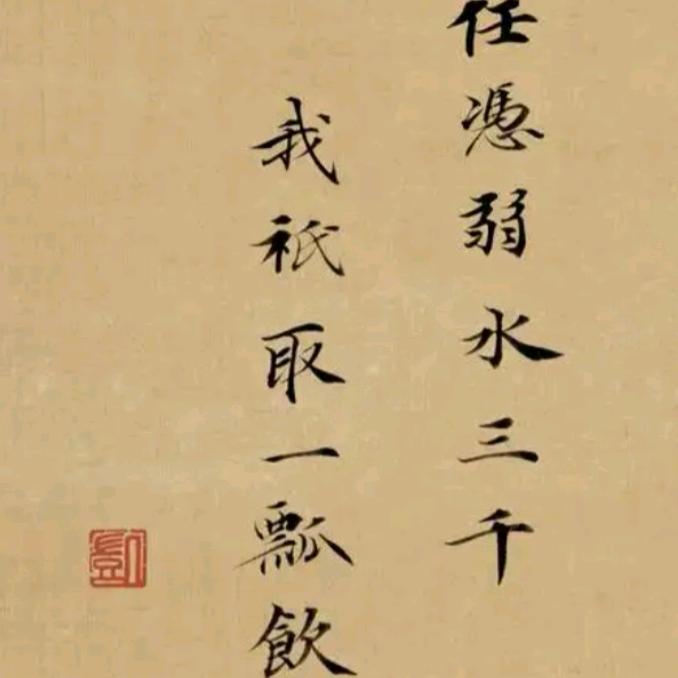 任憑弱水三千
我祇取一瓢飲